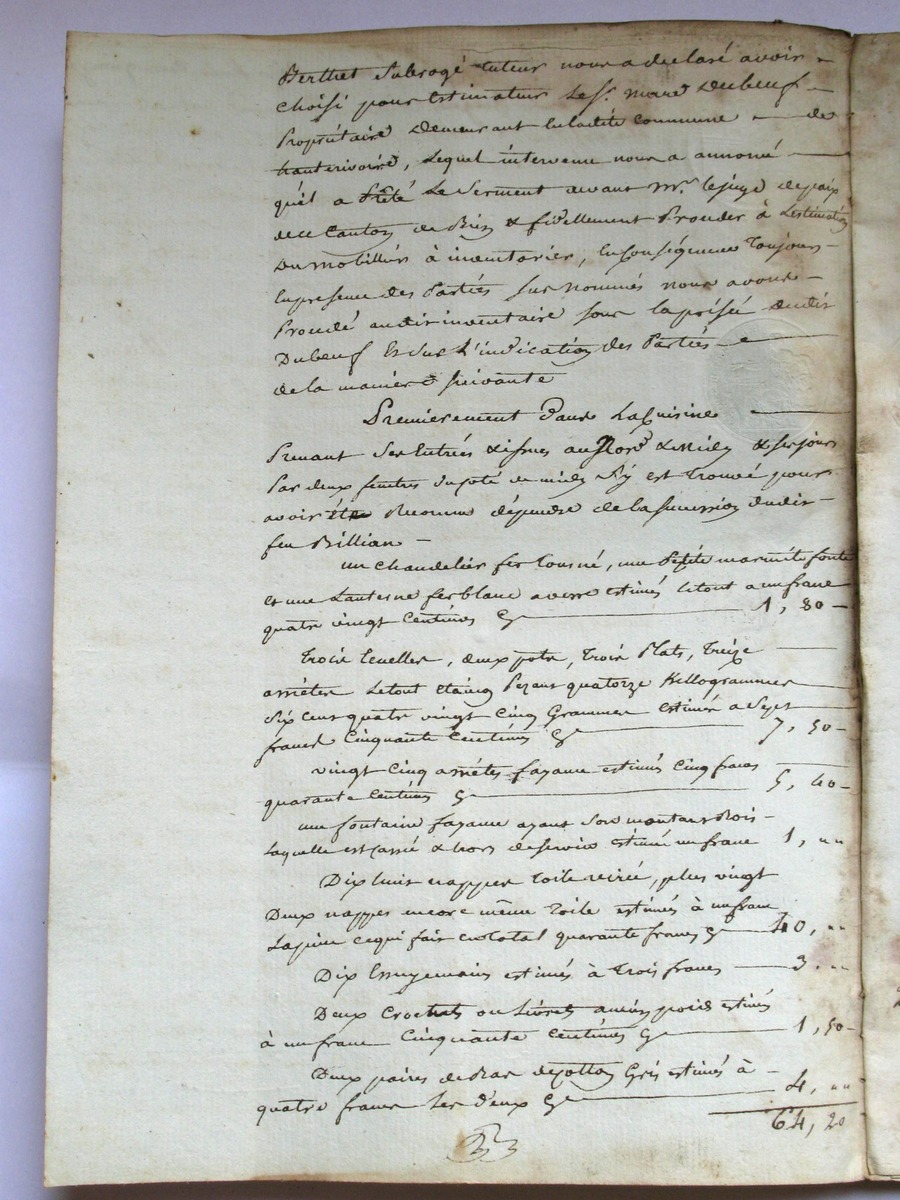 Berthet Subrogé tuteur nous a declaré avoir
choisi pour Estimateur Le Sr. Marc Dubeuf
Propriétaire Demeurant en ladite commune de
hauterivoire, Lequel intervenu nous a annoncé
qu'il a Prêté Le Serment devant Mr. le juge de paix
de ce Canton de fidellement Proceder à Lestimation
Du mobillier à inventorier, En Conséquence Toujours
En presence des Parties sus Nommés nous avons
Procedé audit inventaire sous la prisée dudit
Dubeuf Et Sur L'indication des Parties
de la maniere suivante
Premierement Dans La Cuisine
Prenant Ses Entrées & issues au Nord & Midy & ses jours
Par deux fenetres du coté de midy s'y est Trouvé pour
avoir été Reconnu dépendre de la succession dudit
feu Billian
un chandelier fer tourné, une Petite marmite fonte
et une Lanterne fer blanc a verre estimés le tout a un franc
quatre vingt Centimes 1, 80
Trois Ecuelles, deux pots, Trois Plats, Treize
assiétes Le tout étaing Pezant quatorze Killogrammes
Six Cent quatre vingt Cinq Grammes Estimés a Sept
francs Cinquante Centimes 7, 50
vingt Cinq assiétes fayance estimés Cinq francs
quarante Centimes 5, 40
une fontaine fayance ayant Son montant Bois
Laquelle est Cassé & hors de service estimé un franc 1, ""
Dix huit nappes toile , plus vingt
Deux nappes encore même Toile estimés à un franc
La piece ce qui fait en total quarante francs 40, ""
Dix Essuyemains estimés à Trois francs 3. ""
Deux Crochets ou Livrets ancien poids estimés
à un franc Cinquante Centimes 1, 50
Deux paires de Bas de Cotton Gris estimés à
quatre francs Les deux 4, ""
64, 20